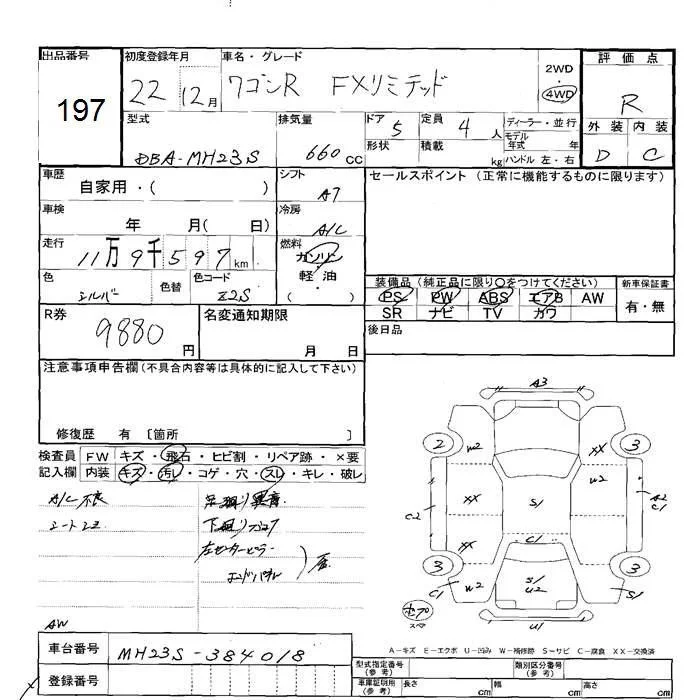 出品番号 初度登録年月 車名・グレード 評価点
197 22 12月 ワゴンR FXリミテッド 2WD 4WD R
型式 排気量 ドア 5 定員 4人 ディーラー・並行 外装 内装
DBA-MH23S 660cc 形状 積載 kg モデル年式 年 D C
ハンドル 左・右
車歴 シフト セールスポイント(正常に機能するものに限ります)
自家用・( ) A7
車検 冷房
年 月( 日) A/C
走行 燃料
11万9千597km ガソリン
色 色替 色コード 軽油 装備品(純正品に限り○をつけてください) 新車保証書
シルバー Z2S ( ) PS PW ABS エアB AW 有・無
SR ナビ TV カワ
R券 名変通知期限 後日品
9880円 月 日
注意事項申告欄(不具合内容等は具体的に記入して下さい)
修復歴 有 〔箇所 〕
検査員 FW キズ・飛石・ヒビ割・リペア跡・×要
記入欄 内装 キズ・汚レ・コゲ・穴・スレ・キレ・破レ
A/C不良 異音
シート
下廻り
左センターピラー
エンドパネル
A3
2 W2 XX 3
W2
XX S1 A2
C2 C1
C1
XX
3 3
C1 W2 S1 S1
U2
U1
スペ
AW
A-キズ E-エクボ U-凹み W-補修跡 S-サビ C-腐食 XX-交換済
車台番号 MH23S-384018
型式指定番号(参考) 類別区分番号(参考)
登録番号 車庫証明用(参考) 長さ cm 幅 cm 高さ cm